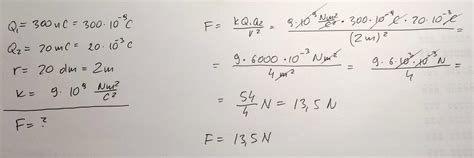 Q₁ = 300 nC = 300·10⁻⁹ C
Q₂ = 20 mC = 20·10⁻³ C
r = 20 dm = 2m
k = 9·10⁹ Nm²/C²
F = ?
F = kQ₁Q₂/r² = 9·10⁹ Nm²/C² · 300·10⁻⁹ C · 20·10⁻³ C/(2m)² =
= 9·6000·10⁻³ Nm²/4 m² = 9·6·10³·10⁻³ N/4 =
= 54/4 N = 13,5 N
F = 13,5 N